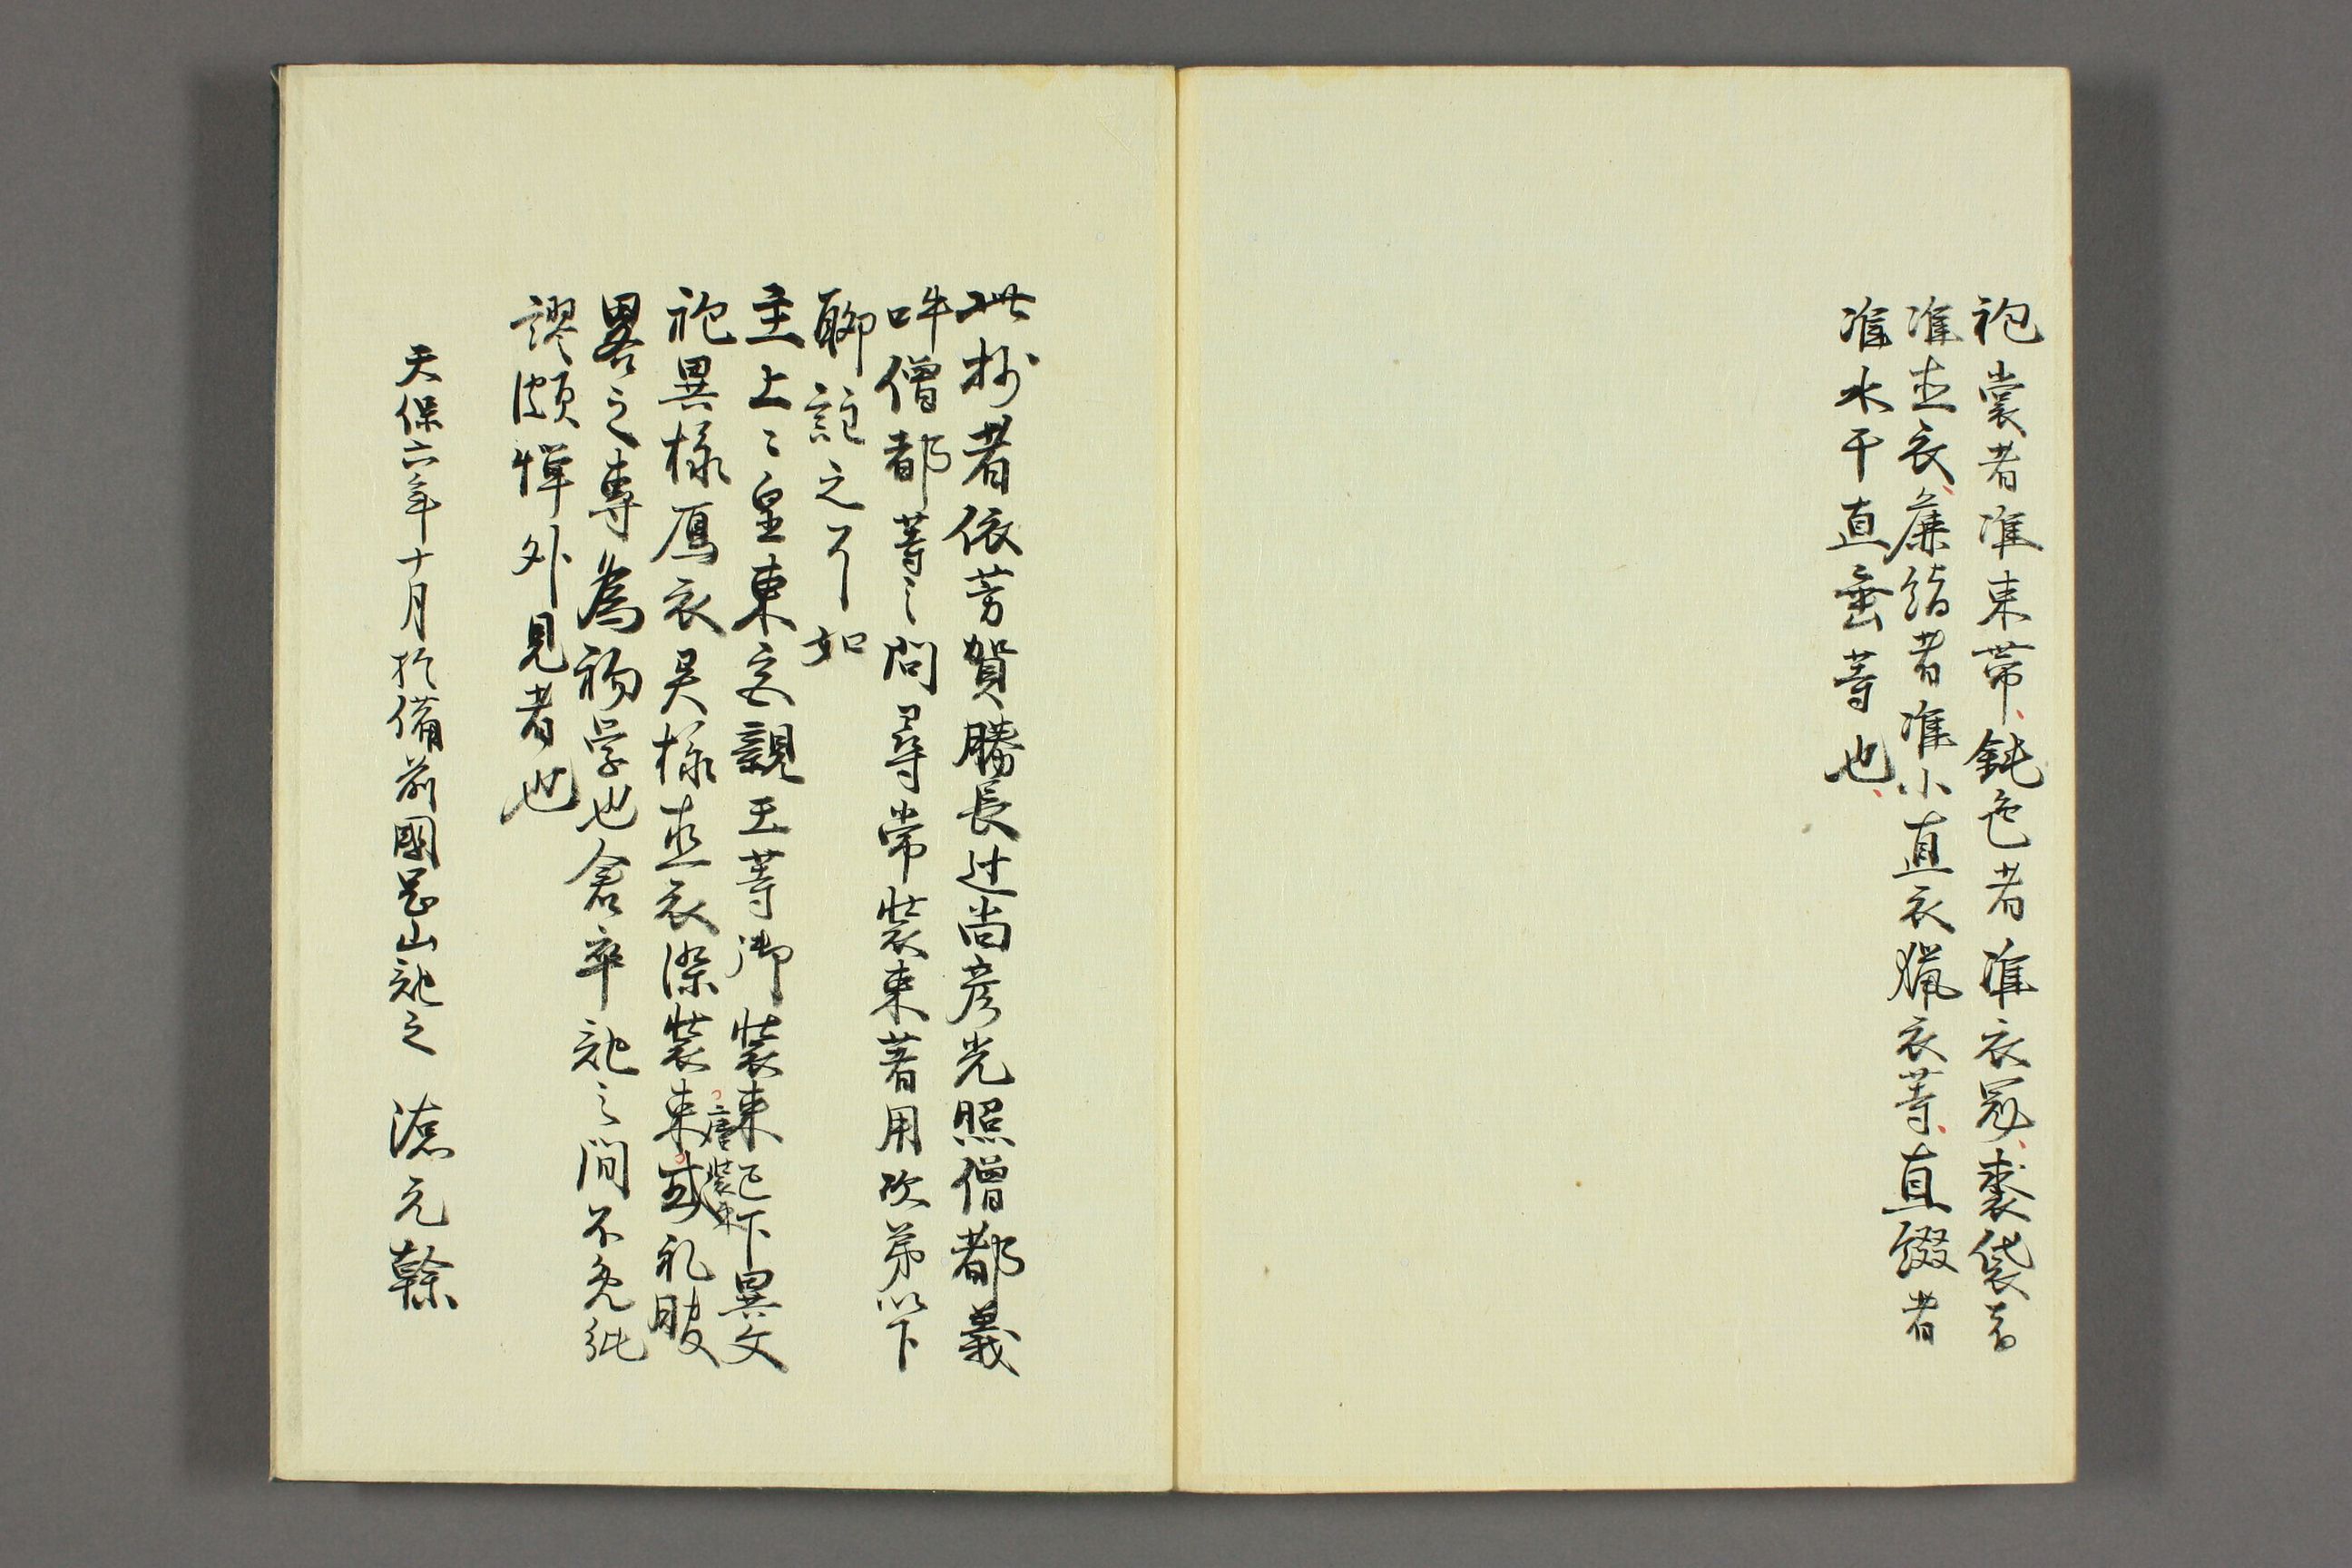 袍裳者准束帯、鈍色者准衣冠、裘袋者
准直衣、䉼絹者准小直衣猟衣等、直綴者
准水干直垂等也、
此抄者依芳賀勝長辻尚彦光照僧都義
吽僧都等之問尋常装束著用次第以下
聊註之了如
主上々皇東宮親王等御装束已下異文
袍異様鳫衣異様直衣染装束唐装束或礼服
畧之専為初学也倉卒記之間不免紕
謬頗憚外見者也
天保六年十月於備前國岡山記之 源元榦